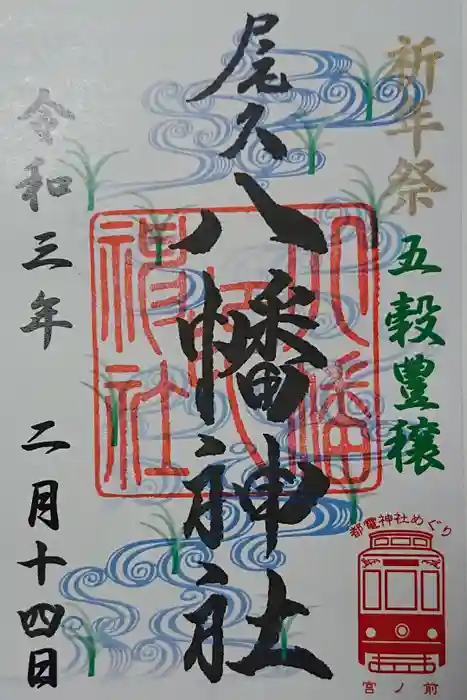 祈年祭 五穀豊穣
尾久八幡神社
八幡神社
令和三年 二月十四日
都電神社めぐり
宮ノ前